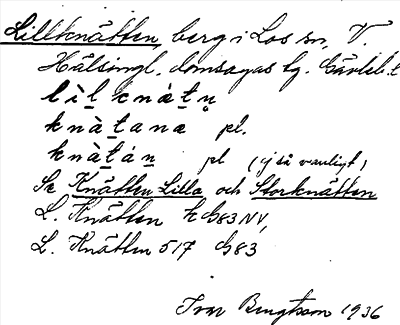 Lillknätten, berg i Los sn, V.
Hälsingl. domsagas tg. Gävleb. l
lìl knàtn̥
knàtana pl.
knàtán pl (ej så vanligt)
Se Knätten Lilla och Storknätten
L. Knätten k G83NV,
L. Knätten 517 G83
Ivar Bengtsson 1936